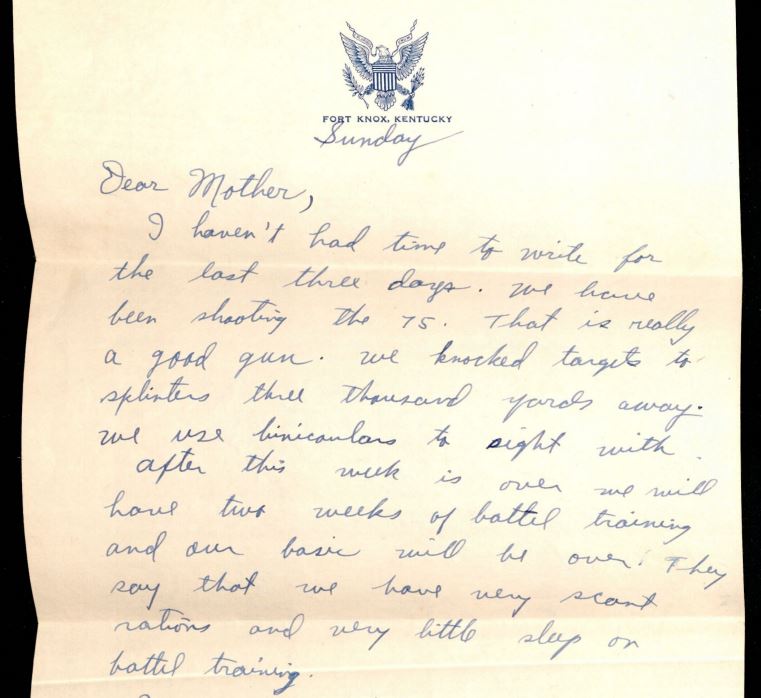 FORT KNOX, KENTUCKY
Sunday
Dear Mother,
I haven't had time to write for
the last three days. We have
been shooting the 75. That is really
a good gun. We knocked targets to
splinters three thousand yards away.
We use biniculars to sight with.
After this week is over we will
have two weeks of battel training
and our basic will be over. They
say that we have very scant
rations and very little sleep on
battel training.